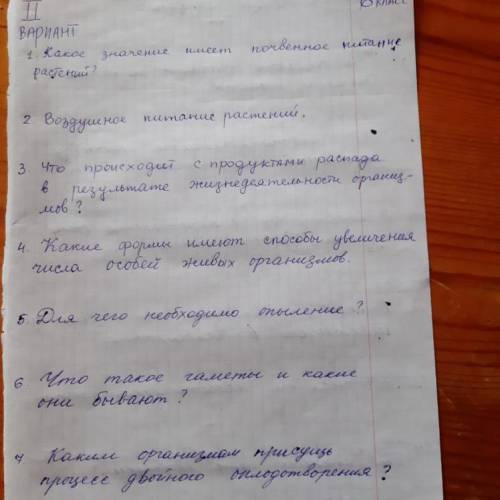 II
6 класс
ВАРИАНТ
1. Какое значение имеет почвенное питание
растений?
2 Воздушное питание растений.
3. Что происходит с продуктами распада
в результате жизнедеятельности организ-
мов?
4. Какие формы имеют способы увеличения
числа особей живых организмов.
5. Для чего необходимо опыление?
6 Что такое гаметы и какие
они бывают?
7 Каким организмам присущь
процесс двойного оплодотворения?